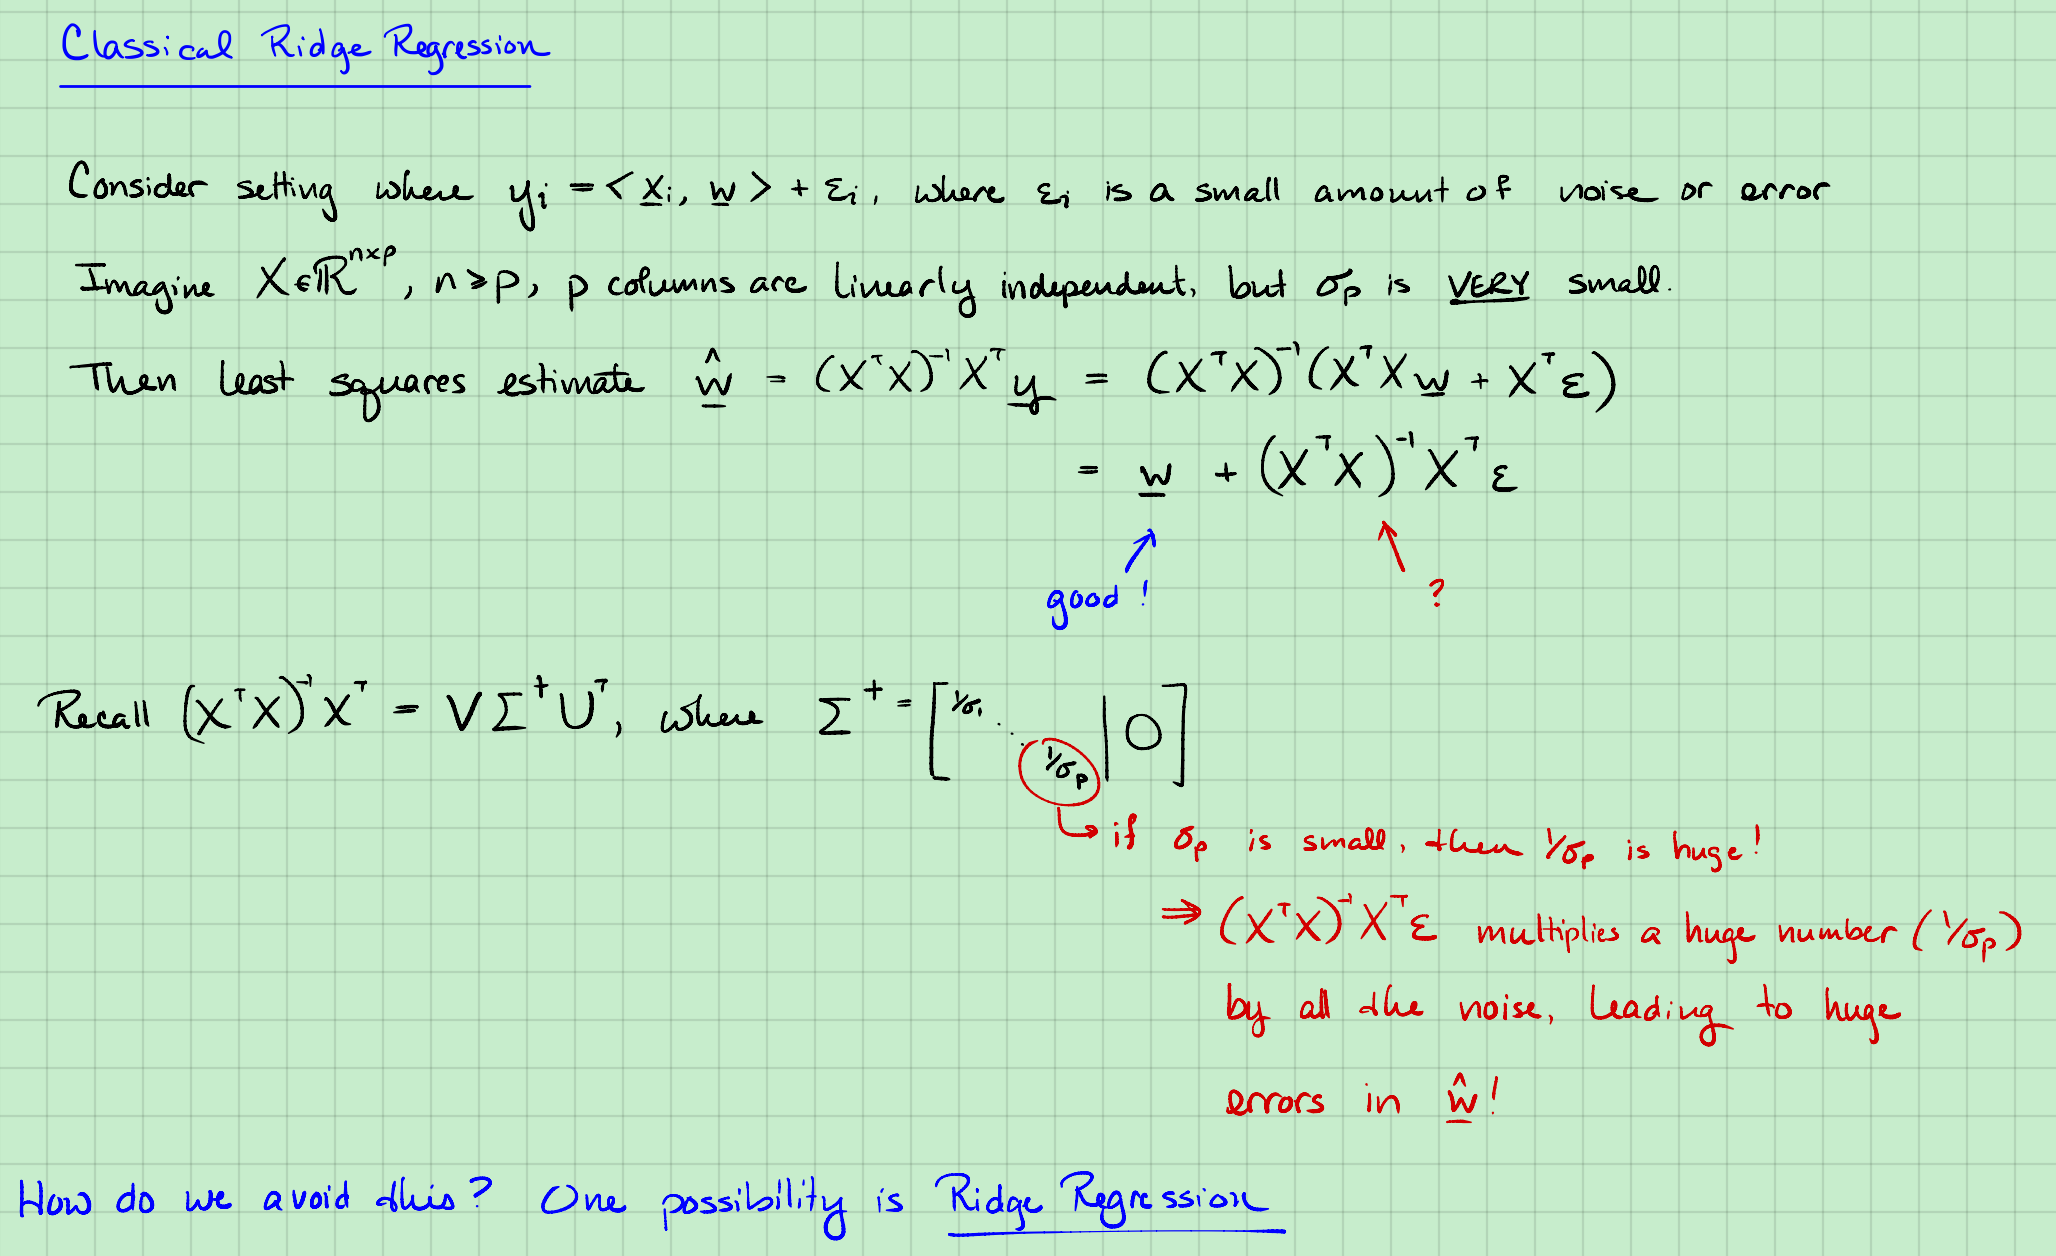 Classical Ridge Regression
Consider setting where yᵢ = <x̲ᵢ, w̲> + εᵢ, where εᵢ is a small amount of noise or error
Imagine X∈ℝⁿˣᵖ, n≥p, p columns are linearly independent, but σₚ is VERY small.
Then least squares estimate ŵ̲ = (XᵀX)⁻¹Xᵀy̲ = (XᵀX)⁻¹(XᵀXw̲ + Xᵀε)
= w̲ + (XᵀX)⁻¹Xᵀε
good! ?
Recall (XᵀX)⁻¹Xᵀ = VΣ⁺Uᵀ, where Σ⁺ = [1/σ₁ ⋱ 1/σₚ | 0]
↳ if σₚ is small, then 1/σₚ is huge!
⇒ (XᵀX)⁻¹Xᵀε multiplies a huge number (1/σₚ)
by all the noise, leading to huge
errors in ŵ̲!
How do we avoid this? One possibility is Ridge Regression